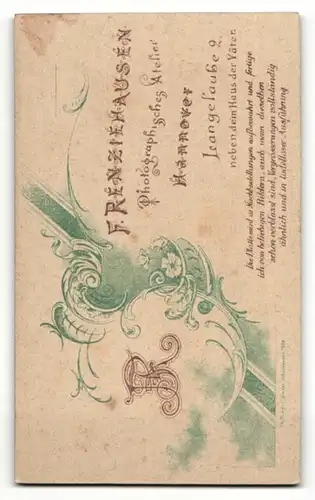 F. RENZIEHAUSEN
Photographisches Atelier
Hannover
Langelaube 2.
neben dem Haus der Väter.
Die Platte wird zu Nachbestellungen aufbewahrt und fertige
ich von beliebigen Bildern, auch wenn dieselben
schon verblasst sind, Vergrösserungen vollständig
ähnlich und in tadelloser Ausführung
FR